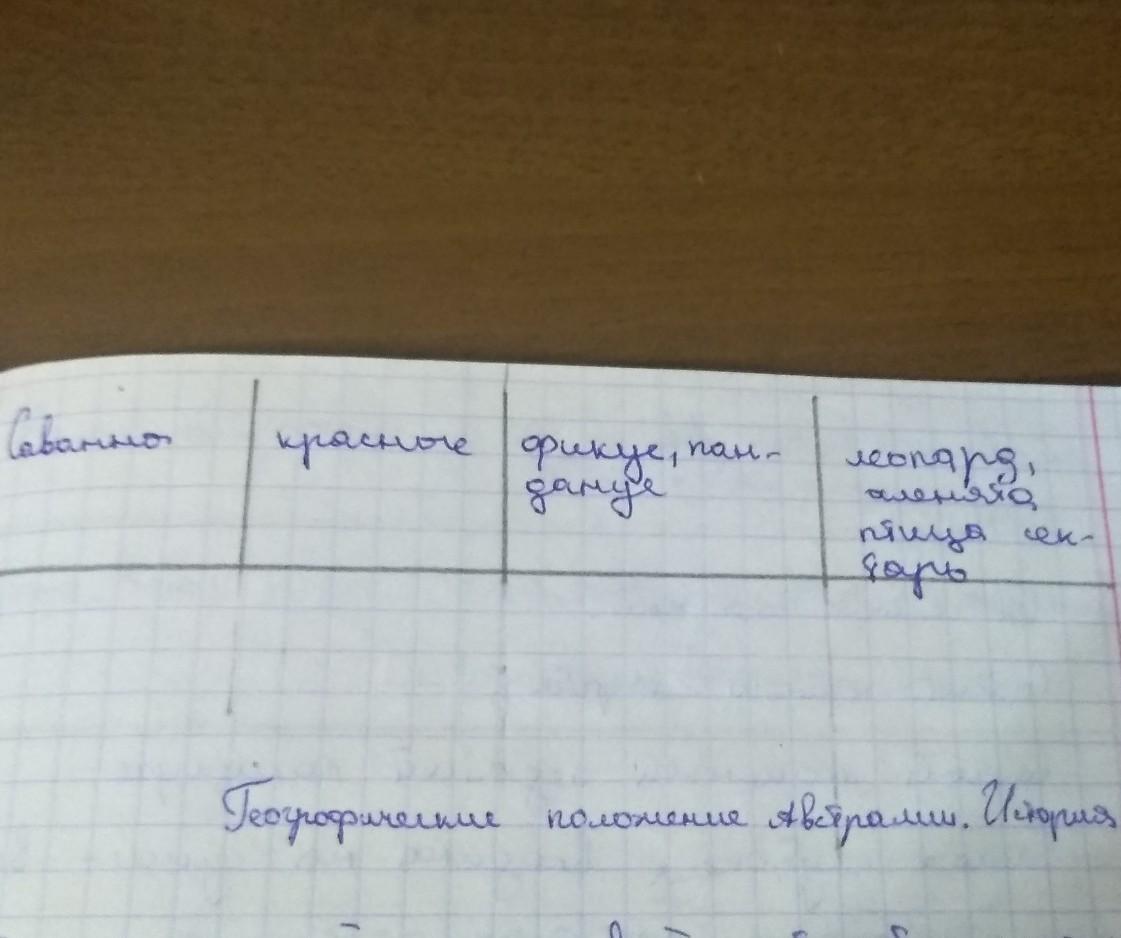 Саванна красные фикус, пан-
данус
леопард,
птица сек-
тарь
Географические положение Австралии. История